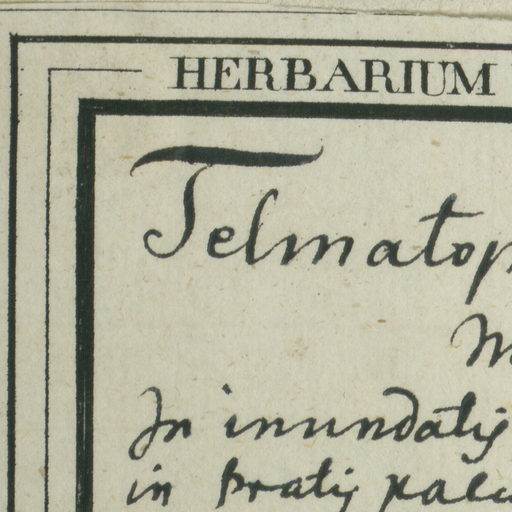 HERBARIUM
Telmatop
In inundatis
in pratis palu